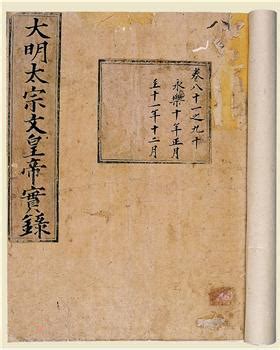 八
卷八十一之九十
永樂十年正月
至十一年十二月
大明太宗文皇帝實錄